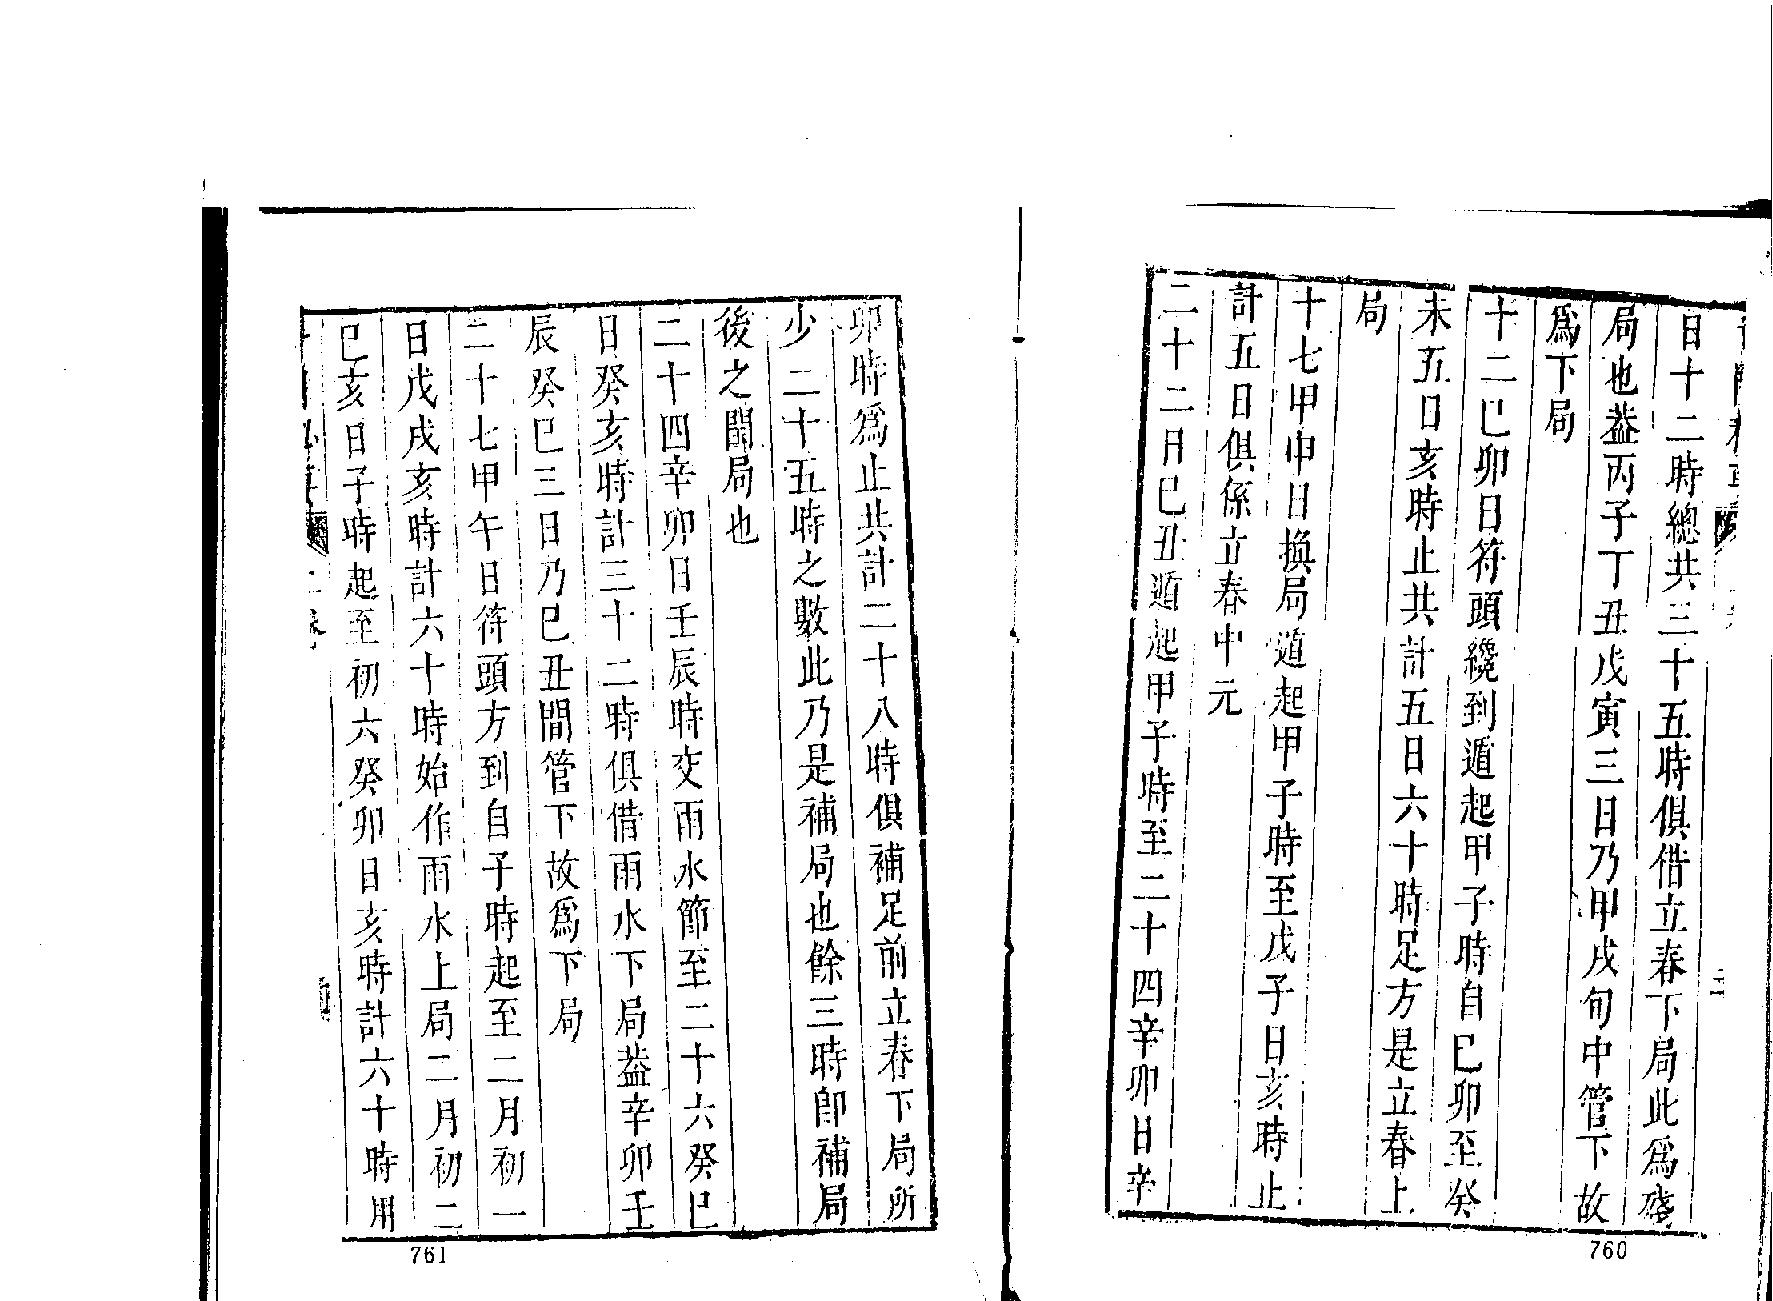 日十二時總共三十五時俱借立春下局此爲殘
局也葢丙子丁丑戊寅三日乃甲戌旬中管下故
爲下局
十二巳卯日符頭纔到遁起甲子時自巳卯至癸
未五日亥時止共計五日六十時足方是立春上
局
十七甲申日換局遁起甲子時至戊子日亥時止
計五日俱係立春中元
二十二月巳丑遁起甲子時至二十四辛卯日辛
760
卯時爲止共計二十八時俱補足前立春下局所
少二十五時之數此乃是補局也餘三時卽補局
後之閏局也
二十四辛卯日壬辰時交雨水節至二十六癸巳
日癸亥時計三十二時俱借雨水下局葢辛卯壬
辰癸巳三日乃巳丑間管下故爲下局
二十七甲午日符頭方到自子時起至二月初一
日戊戌亥時計六十時始作雨水上局二月初二
巳亥日子時起至初六癸卯日亥時計六十時用
761